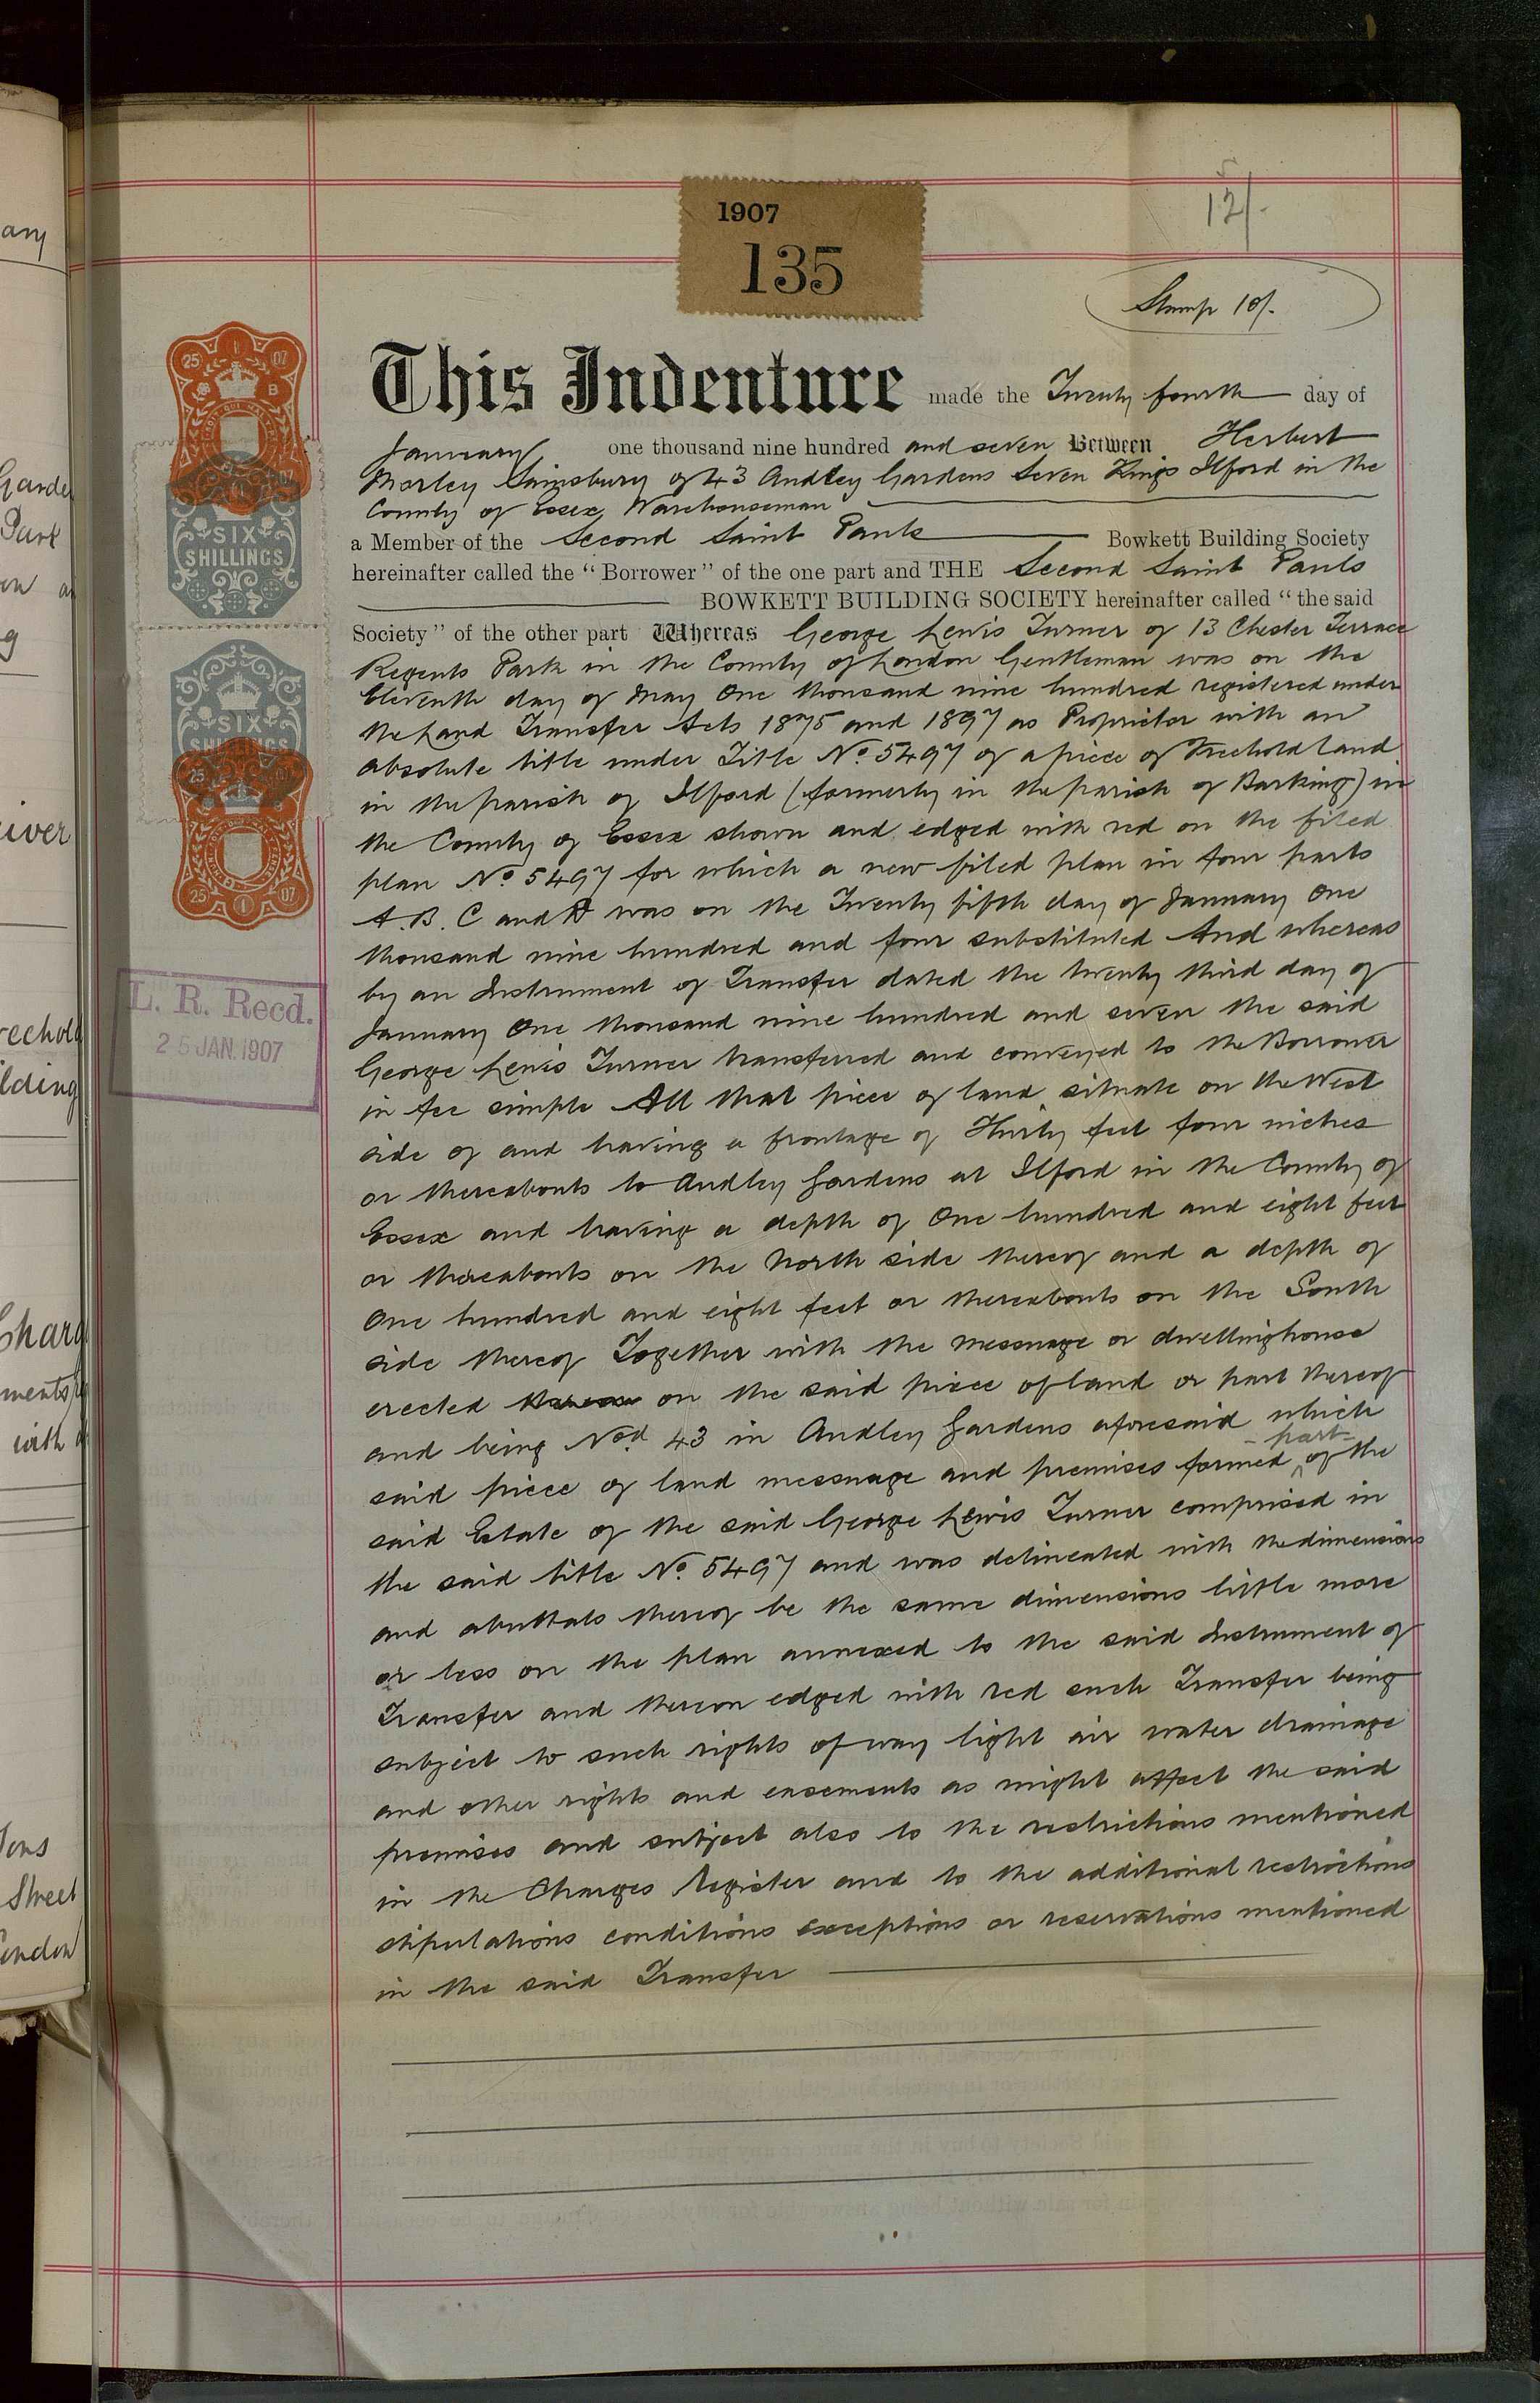 any
Garde
Park
on a
g
iver
reehold
ilding
Charg
ments
with
Street
London
1907
135
12/-
Stamp 10/-
25 07
B
25 07
SIX
SHILLINGS
SIX
SHILLINGS
25 07
25 07
L. R. Recd.
25 JAN. 1907
This Indenture made the Twenty fourth day of
January one thousand nine hundred and seven Between Herbert
Morley Sainsbury of 43 Audley Gardens Seven Kings Ilford in the
County of Essex Warehouseman
a Member of the Second Saint Pauls Bowkett Building Society
hereinafter called the "Borrower" of the one part and THE Second Saint Pauls
BOWKETT BUILDING SOCIETY hereinafter called "the said
Society" of the other part Whereas George Lewis Turner of 13 Chester Terrace
Regents Park in the County of London Gentleman was on the
Eleventh day of May One thousand nine hundred registered under
the Land Transfer Acts 1875 and 1897 as Proprietor with an
absolute title under Title No. 5497 of a piece of Freehold land
in the parish of Ilford (formerly in the parish of Barking) in
the County of Essex shown and edged with red on the filed
plan No. 5497 for which a new filed plan in four parts
A. B. C and D was on the Twenty fifth day of January One
thousand nine hundred and four substituted And whereas
by an Instrument of Transfer dated the twenty third day of
January One thousand nine hundred and seven the said
George Lewis Turner transferred and conveyed to the Borrower
in fee simple All that piece of land situate on the West
side of and having a frontage of Thirty feet four inches
or thereabouts to Audley Gardens at Ilford in the County of
Essex and having a depth of One hundred and eight feet
or thereabouts on the North side thereof and a depth of
One hundred and eight feet or thereabouts on the South
side thereof Together with the messuage or dwellinghouse
erected thereon on the said piece of land or part thereof
and being Nod 43 in Audley Gardens aforesaid which
said piece of land messuage and premises formed part of the
said Estate of the said George Lewis Turner comprised in
the said title No. 5497 and was delineated with the dimensions
and abuttals thereof be the same dimensions little more
or less on the plan annexed to the said Instrument of
Transfer and thereon edged with red such Transfer being
subject to such rights of way light air water drainage
and other rights and easements as might affect the said
premises and subject also to the restrictions mentioned
in the Charges Register and to the additional restrictions
stipulations conditions exceptions or reservations mentioned
in the said Transfer